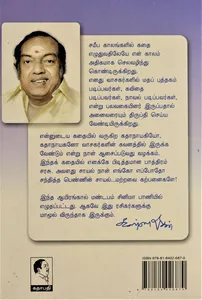 சமீப காலங்களில் கதை
எழுதுவதிலேயே என் காலம்
அதிகமாக செலவழிந்து
கொண்டிருக்கிறது.
எனது வாசகர்களில் மதப் புத்தகம்
படிப்பவர்கள், கவிதை
படிப்பவர்கள், நாவல் படிப்பவர்கள்
என்று பலவகையினர் இருப்பதால்
அனைவரையும் திருப்தி செய்ய
வேண்டியிருக்கிறது.
என்னுடைய கதையில் வருகிற கதாநாயகியோ,
கதாநாயகனோ வாசகர்களின் கவனத்தில் இருக்க
வேண்டும் என்று நான் ஆசைப்படுவது வழக்கம்.
இந்தக் கதையில் எனக்கே பிடித்தமான பாத்திரம்
சரசு. அவளது சாயல் நான் எங்கோ எப்போதோ
சந்தித்த பெண்ணின் சாயல்...மற்றவை கற்பனைகளே!
இந்த ஆயிரங்கால் மண்டபம் சினிமா பாணியில்
எழுதப்பட்டது. ஆகவே இது ரசிகர்களுக்குத்
மாமூல் விருந்தாக இருக்கும்.
கண்ணதாசன்